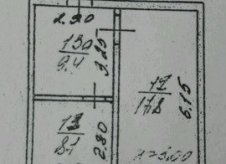 2.90
13а
9.4
3.25
12
17.8
6.15
13
8.1
2.80